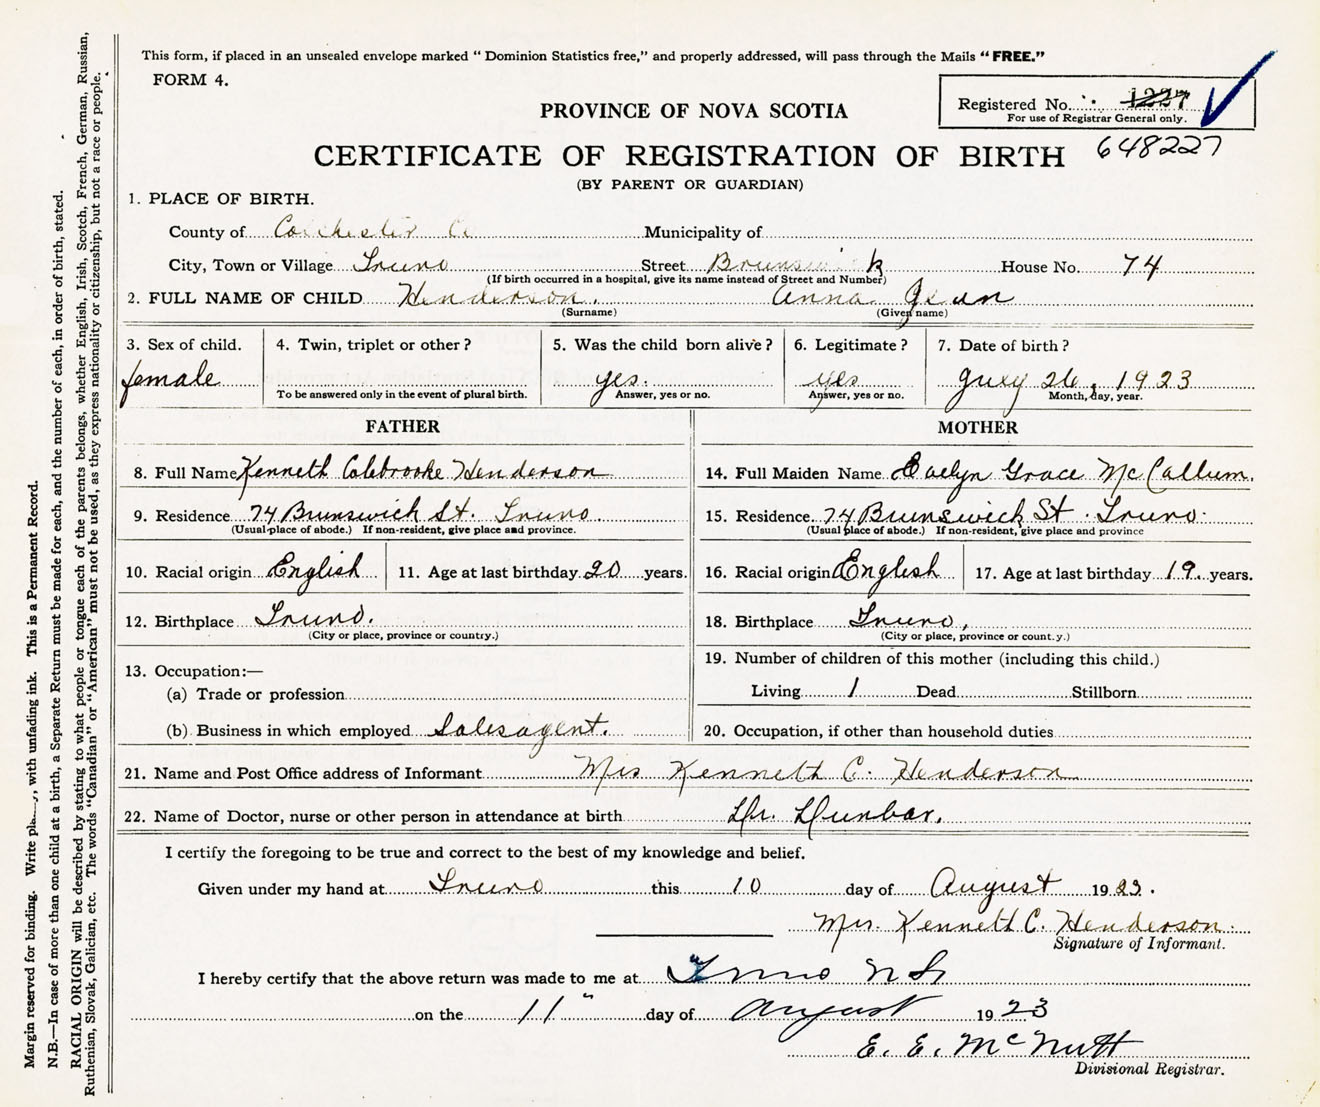 This form, if placed in an unsealed envelope marked “ Dominion Statistics free,” and properly addressed, will pass through the Mails “ FREE.”
FORM 4.
Registered No. 1227
For use of Registrar General only.
648227
PROVINCE OF NOVA SCOTIA
CERTIFICATE OF REGISTRATION OF BIRTH
(BY PARENT OR GUARDIAN)
1. PLACE OF BIRTH.
County of Colchester Co Municipality of
City, Town or Village Truro Street Brunswick House No. 74
(If birth occurred in a hospital, give its name instead of Street and Number)
2. FULL NAME OF CHILD Henderson. Anna Jean
(Surname) (Given name)
3. Sex of child. 4. Twin, triplet or other? 5. Was the child born alive? 6. Legitimate? 7. Date of birth?
female yes. yes July 26, 1923
To be answered only in the event of plural birth. Answer, yes or no. Answer, yes or no. Month, day, year.
FATHER MOTHER
8. Full Name Kenneth Colebrooke Henderson 14. Full Maiden Name Evelyn Grace McCallum.
9. Residence 74 Brunswick St. Truro. 15. Residence. 74 Brunswick St. Truro.
(Usual place of abode.) If non-resident, give place and province. (Usual place of abode.) If non-resident, give place and province
10. Racial origin English 11. Age at last birthday 20 years. 16. Racial origin English 17. Age at last birthday 19. years.
12. Birthplace Truro. 18. Birthplace Truro,
(City or place, province or country.) (City or place, province or count.y.)
13. Occupation:— 19. Number of children of this mother (including this child.)
(a) Trade or profession Living 1 Dead Stillborn
(b) Business in which employed Salesagent. 20. Occupation, if other than household duties
21. Name and Post Office address of Informant Mrs Kenneth C. Henderson
22. Name of Doctor, nurse or other person in attendance at birth Dr. Dunbar.
I certify the foregoing to be true and correct to the best of my knowledge and belief.
Given under my hand at Truro this 10 day of August 1923.
Mrs. Kenneth C. Henderson.
Signature of Informant.
I hereby certify that the above return was made to me at Truro N S
on the 11" day of August 1923
E. E. McNutt
Divisional Registrar.
Margin reserved for binding. Write with unfading ink. This is a Permanent Record.
N.B.—In case of more than one child at a birth, a Separate Return must be made for each, and the number of each, in order of birth, stated.
RACIAL ORIGIN will be described by stating to what people or tongue each of the parents belongs, whether English, Irish, Scotch, French, German, Russian,
Ruthenian, Slovak, Galician, etc. The words “Canadian” or “American” must not be used, as they express nationality or citizenship, but not a race or people.